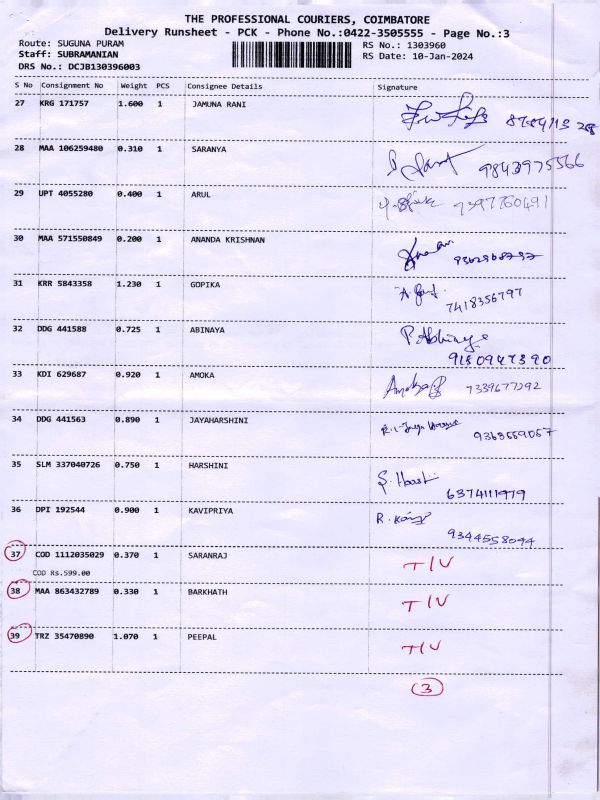 THE PROFESSIONAL COURIERS, COIMBATORE
Delivery Runsheet - PCK - Phone No.:0422-3505555 - Page No.:3
Route: SUGUNA PURAM RS No.: 1303960
Staff: SUBRAMANIAN RS Date: 10-Jan-2024
DRS No.: DCJB130396003
S No Consignment No Weight PCS Consignee Details Signature
27 KRG 171757 1.600 1 JAMUNA RANI
28 MAA 106259480 0.310 1 SARANYA 9843975566
29 UPT 4055280 0.400 1 ARUL 7397760491
30 MAA 571550849 0.200 1 ANANDA KRISHNAN
31 KRR 5843358 1.230 1 GOPIKA 7418356797
32 DDG 441588 0.725 1 ABINAYA P. Abinaya
9180947390
33 KDI 629687 0.920 1 AMOKA 7339677292
34 DDG 441563 0.890 1 JAYAHARSHINI 9363559057
35 SLM 337040726 0.750 1 HARSHINI 6374111979
36 DPI 192544 0.900 1 KAVIPRIYA 9344558094
37 COD 1112035029 0.370 1 SARANRAJ T/V
COD Rs.599.00
38 MAA 863432789 0.330 1 BARKHATH T/V
39 TRZ 35470890 1.070 1 PEEPAL T/V
3